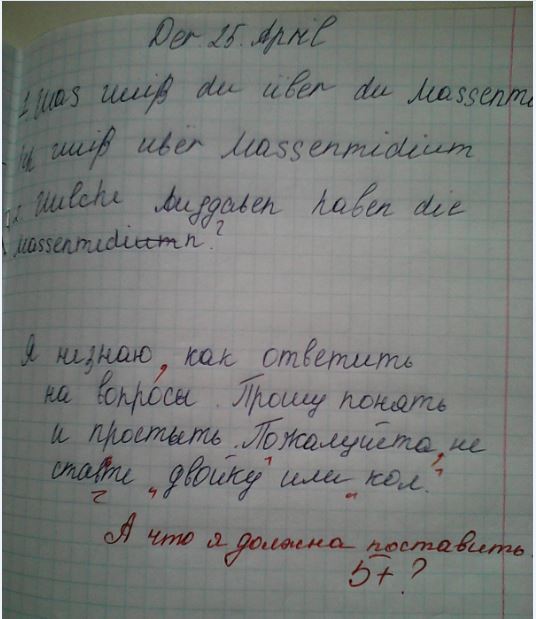 Der 25. April
1. Was wiß du über du Massenmi
Ich wiß über Massenmidium
2. Welche Augdaben haben die
Massenmidiumn?
Я незнаю, как ответить
на вопросы. Прошу понять
и простыть. Пожалуйста, не
ставте "двойку" или "кол".
А что я должна поставить.
5+?